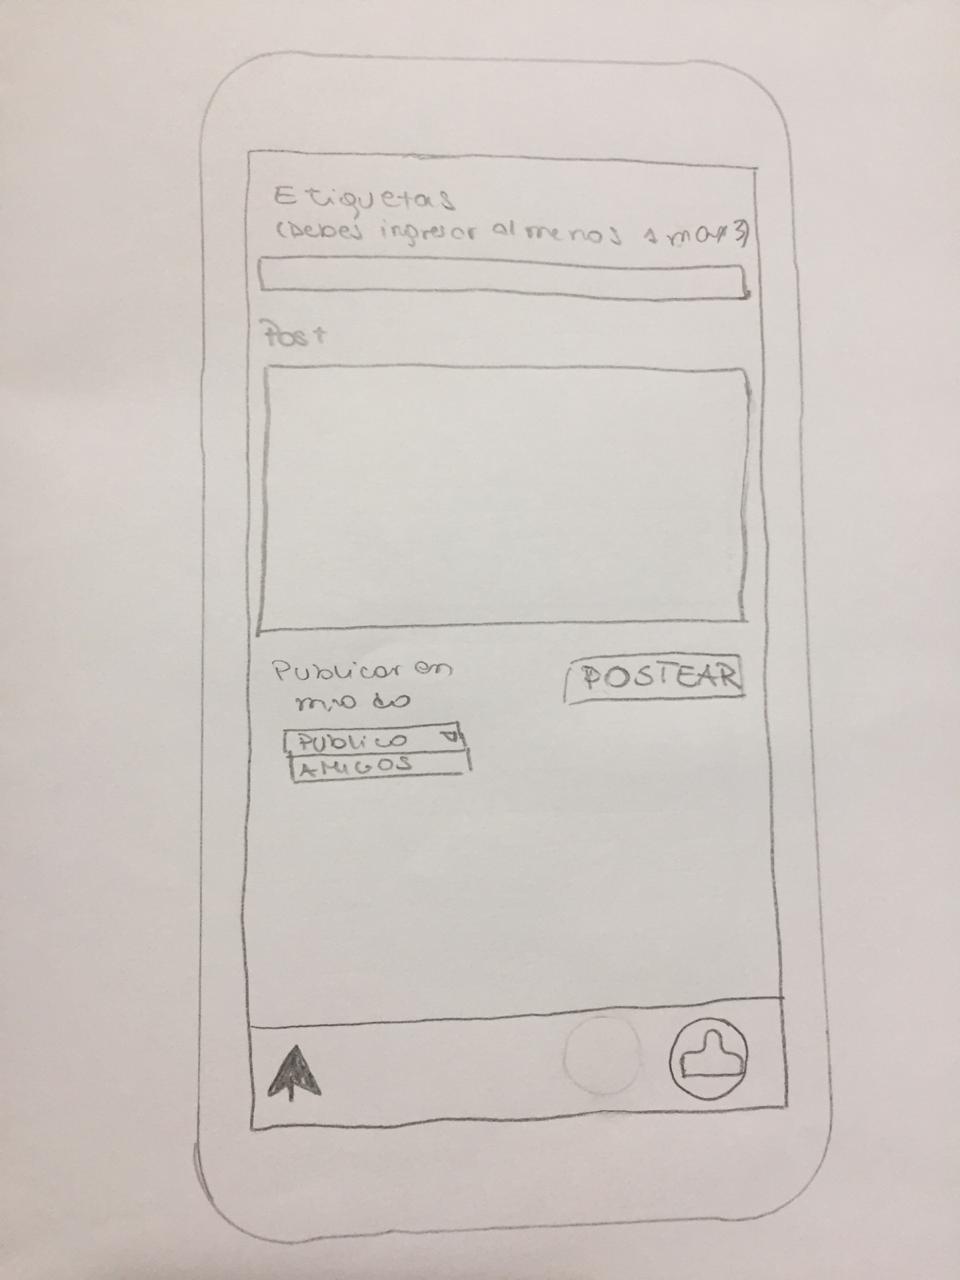 Etiquetas
(Debes ingresar al menos 1 max 3)
Post
Publicar en
modo
POSTEAR
PUBLICO
AMIGOS